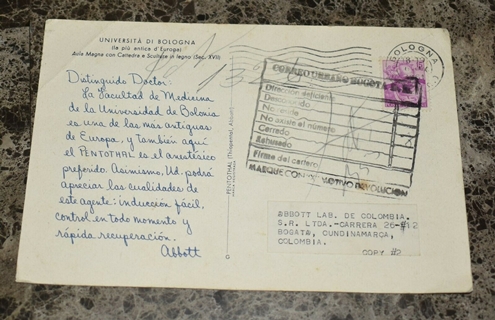 UNIVERSITÀ DI BOLOGNA
(la più antica d'Europa)
Aula Magna con Cattedra e Sculture in legno (Sec. XVII)
Distinguido Doctor:
La Facultad de Medicina
de la Universidad de Bolonia
es una de las más antiguas
de Europa, y también aquí
el PENTOTHAL es el anestésico
preferido. Asimismo, Ud. podrá
apreciar las cualidades de
este agente: inducción fácil,
control en todo momento y
rápida recuperación.
Abbott
PENTOTHAL (Thiopental, Abbott)
BOLOGNA
CORREO URBANO BOGOTA
Dirección deficiente
Desconocido
No reside
No existe el número
Cerrado
Rehusado
Firma del cartero
MARQUE CON EL MOTIVO DEVOLUCION
ABBOTT LAB. DE COLOMBIA.
S.R LTDA.-CARRERA 26-#12
BOGATA, CUNDINAMARCA,
COLOMBIA.
COPY #2